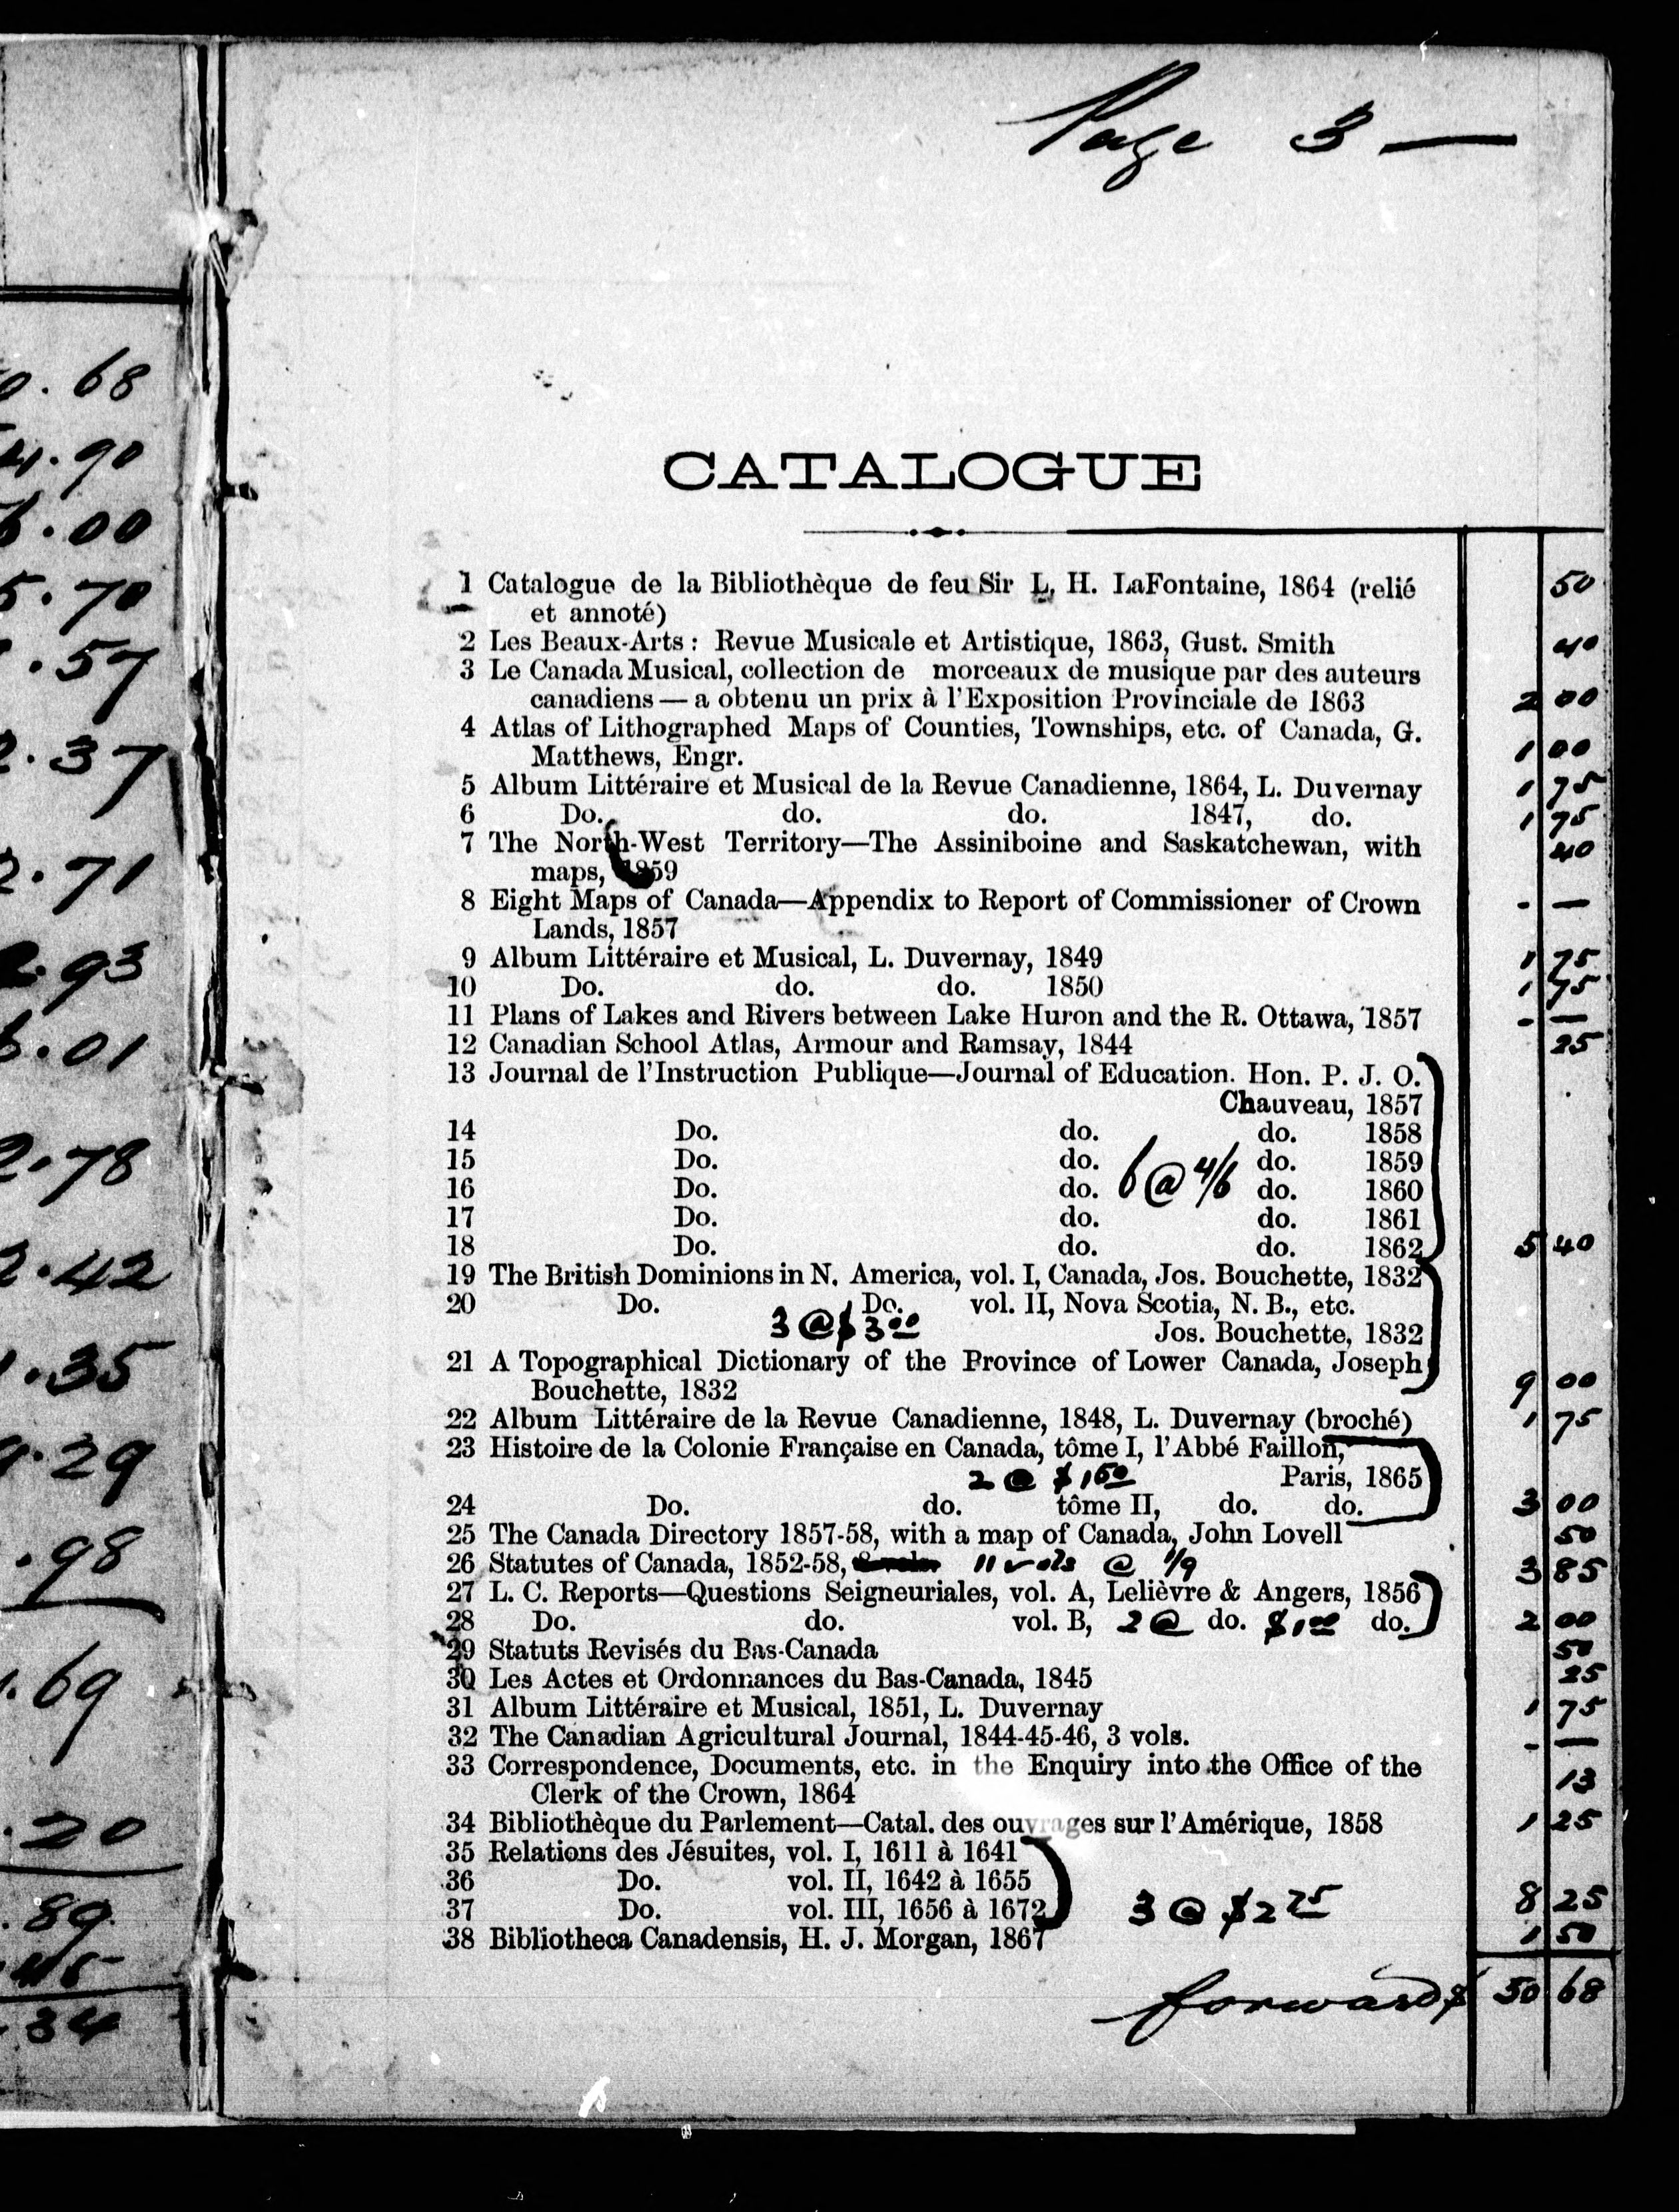 Page 3 —
. 68
.90
.00
5.70
.57
.37
.71
.93
.01
.78
.42
.35
.29
.98
.69
.20
.89
.34
CATALOGUE
1 Catalogue de la Bibliothèque de feu Sir L. H. LaFontaine, 1864 (relié 50
et annoté)
2 Les Beaux-Arts : Revue Musicale et Artistique, 1863, Gust. Smith 40
3 Le Canada Musical, collection de morceaux de musique par des auteurs
canadiens — a obtenu un prix à l'Exposition Provinciale de 1863 2 00
4 Atlas of Lithographed Maps of Counties, Townships, etc. of Canada, G.
Matthews, Engr. 1 00
5 Album Littéraire et Musical de la Revue Canadienne, 1864, L. Duvernay 1 75
6 Do. do. do. 1847, do. 1 75
7 The North-West Territory—The Assiniboine and Saskatchewan, with 40
maps, 1859
8 Eight Maps of Canada—Appendix to Report of Commissioner of Crown - —
Lands, 1857
9 Album Littéraire et Musical, L. Duvernay, 1849 1 75
10 Do. do. do. 1850 1 75
11 Plans of Lakes and Rivers between Lake Huron and the R. Ottawa, 1857 - —
12 Canadian School Atlas, Armour and Ramsay, 1844 25
13 Journal de l'Instruction Publique—Journal of Education. Hon. P. J. O.
Chauveau, 1857
14 Do. do. do. 1858
15 Do. do. do. 1859
16 Do. do. 6 @ 4/6 do. 1860
17 Do. do. do. 1861
18 Do. do. do. 1862 5 40
19 The British Dominions in N. America, vol. I, Canada, Jos. Bouchette, 1832
20 Do. Do. vol. II, Nova Scotia, N. B., etc.
3 @ $ 3 00 Jos. Bouchette, 1832
21 A Topographical Dictionary of the Province of Lower Canada, Joseph
Bouchette, 1832 9 00
22 Album Littéraire de la Revue Canadienne, 1848, L. Duvernay (broché) 1 75
23 Histoire de la Colonie Française en Canada, tôme I, l'Abbé Faillon,
2 @ $ 1 50 Paris, 1865
24 Do. do. tôme II, do. do. 3 00
25 The Canada Directory 1857-58, with a map of Canada, John Lovell 50
26 Statutes of Canada, 1852-58, 11 vols @ 1/9 3 85
27 L. C. Reports—Questions Seigneuriales, vol. A, Lelièvre & Angers, 1856
28 Do. do. vol. B, 2 @ do. $ 1 00 do. 2 00
29 Statuts Revisés du Bas-Canada 50
30 Les Actes et Ordonnances du Bas-Canada, 1845 25
31 Album Littéraire et Musical, 1851, L. Duvernay 1 75
32 The Canadian Agricultural Journal, 1844-45-46, 3 vols. - —
33 Correspondence, Documents, etc. in the Enquiry into the Office of the
Clerk of the Crown, 1864 13
34 Bibliothèque du Parlement—Catal. des ouvrages sur l'Amérique, 1858 1 25
35 Relations des Jésuites, vol. I, 1611 à 1641
36 Do. vol. II, 1642 à 1655
37 Do. vol. III, 1656 à 1672 3 @ $ 2 75 8 25
38 Bibliotheca Canadensis, H. J. Morgan, 1867 1 50
forward $ 50 68